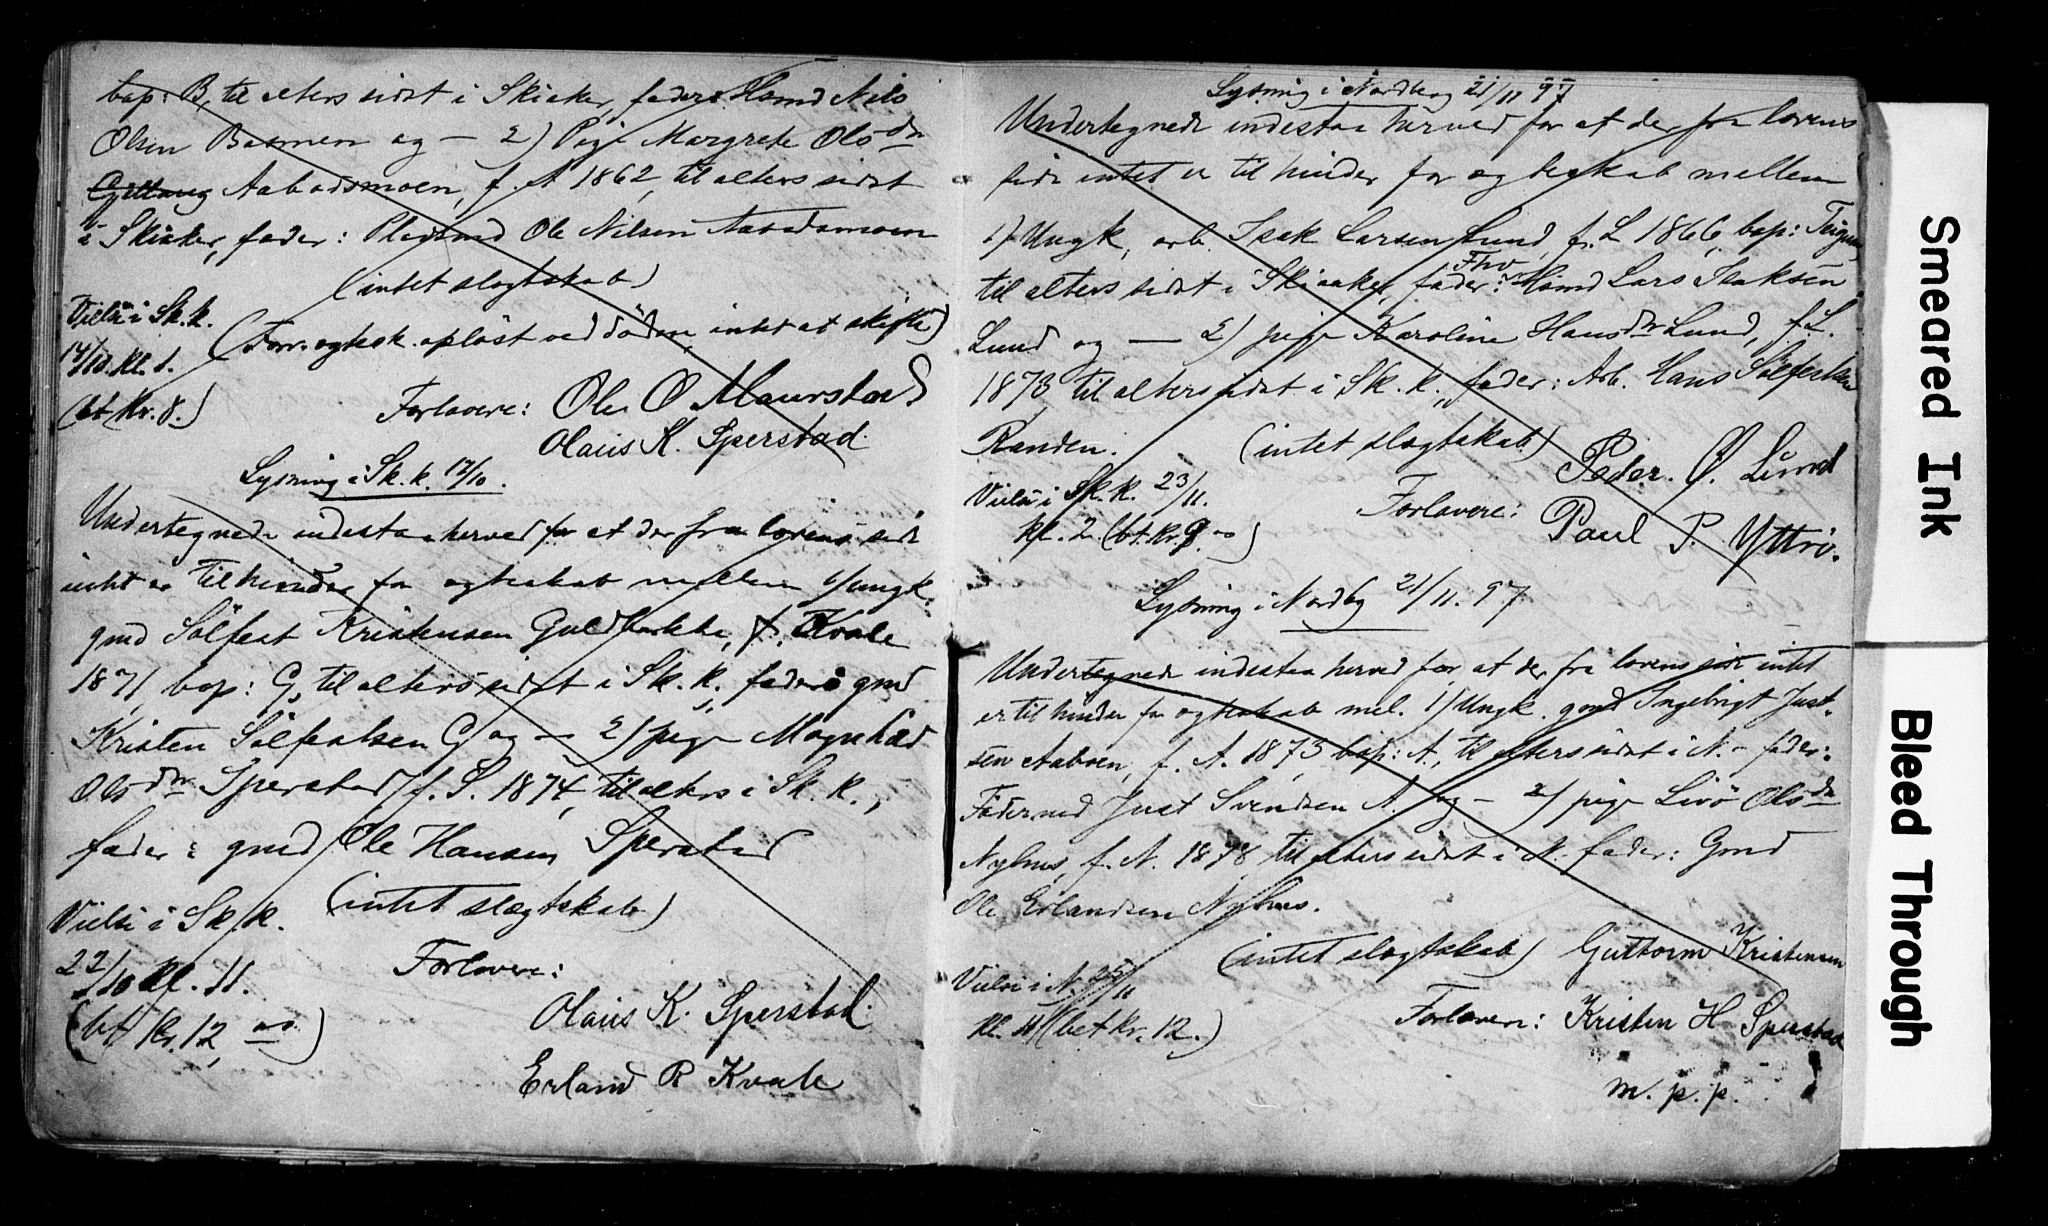 bop: B, til alters sidst i Skiaker, fader: Hsmd Nils
Olsen Bismoen og — 2) Pige Margrete Olsdtr
Aabadsmoen, f. A 1862, til alters sidst
i Skiaker, fader: Pladsmd Ole Nilsen Aabadsmoen
(intet slegtskab)
Vielse i Sk. k.
14/10. kl. 1.
(bt. Kr. 8.)
(Forr. egtesk. opløst ved døden, intet at skifte)
Forlovere: Ole O. Maurstad
Olaus K. Sperstad.
Lysning i Sk. k. 17/10.
Undertegnede indestaa herved for at der fra lovens side
intet er til hinder for egteskab mellem 1) ungk.
gmd Sølfest Kristensen Guldbakke, f. Kvale
1871, bop: G, til alters sidst i Sk. k., fader: gmd
Kristen Sølfestsen G og — 2) pige Magnhild
Olsdtr Sperstad, f. S. 1874, til alters i Sk. k.,
fader: gmd Ole Hansen Sperstad
(intet slægtskab)
Vielse i Sk. k.
22/10 kl. 11.
(bt Kr. 12,00)
Forlovere:
Olaus K. Sperstad.
Erland R Kvale
Lysning i Nordberg 21/11 97
Undertegnede indestaa herved for at der fra lovens
side intet er til hinder for egteskab mellem
1) Ungk. arb. Isak Larsen Lund, f. L 1866, bop:
til alters sidst i Skiaker, fader: Fhv. Hsmd Lars Isaksen
Lund og — 2) pige Karoline Hansdtr Lund, f. L.
1873, til alters sidst i Sk. k., fader: Arb. Hans Sølfestsen
Randen. (intet slægtskab)
Vielse i Sk. k. 23/11.
kl. 2 (bt. kr. 9.00)
Forlovere:
Peder. Ø. Lund
Paul P. Yttri.
Lysning i Nordbg 21/11. 97
Undertegnede indestaa herved for at der fra lovens side intet
er til hinder for egteskab mel. 1) Ungk. gmd Ingebrigt Just-
sen Aaboen, f. A. 1873, bop: A., til alters sidst i N. – fader:
Føderaad Just Svendsen A. og — 2) pige Livø Olsdtr
Nyhus, f. N. 1878, til alters sidst i N. fader: Gmd
Ole Erlandsen Nyhus.
(intet slægtskab)
Vielse i N. 25/11
Kl. 11 (bet kr. 12.)
Guttorm Kristensen
Forlovere: Kristen H Sperstad
m. p. p.
Smeared Ink
Bleed Through